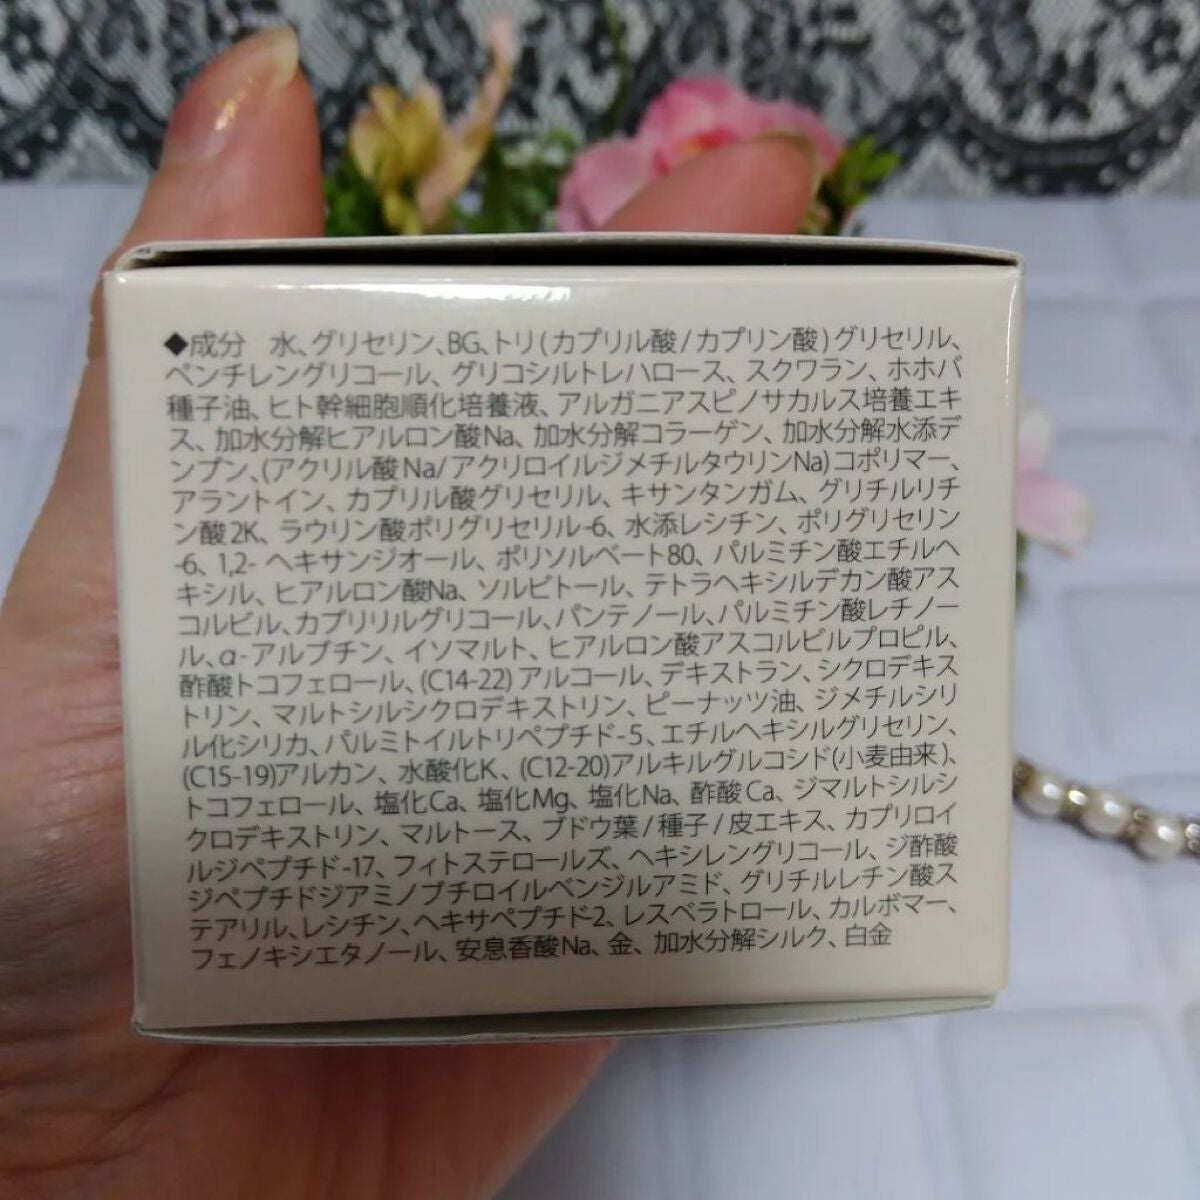 ◆成分　水、グリセリン、BG、トリ(カプリル酸/カプリン酸)グリセリル、
ペンチレングリコール、グリコシルトレハロース、スクワラン、ホホバ
種子油、ヒト幹細胞順化培養液、アルガニアスピノサカルス培養エキ
ス、加水分解ヒアルロン酸Na、加水分解コラーゲン、加水分解水添デ
ンプン、(アクリル酸Na/アクリロイルジメチルタウリンNa)コポリマー、
アラントイン、カプリル酸グリセリル、キサンタンガム、グリチルリチ
ン酸2K、ラウリン酸ポリグリセリル-6、水添レシチン、ポリグリセリン
-6、1,2-ヘキサンジオール、ポリソルベート80、パルミチン酸エチルヘ
キシル、ヒアルロン酸Na、ソルビトール、テトラヘキシルデカン酸アス
コルビル、カプリリルグリコール、パンテノール、パルミチン酸レチノー
ル、α-アルブチン、イソマルト、ヒアルロン酸アスコルビルプロピル、
酢酸トコフェロール、(C14-22)アルコール、デキストラン、シクロデキス
トリン、マルトシルシクロデキストリン、ピーナッツ油、ジメチルシリ
ル化シリカ、パルミトイルトリペプチド-5、エチルヘキシルグリセリン、
(C15-19)アルカン、水酸化K、(C12-20)アルキルグルコシド(小麦由来)、
トコフェロール、塩化Ca、塩化Mg、塩化Na、酢酸Ca、ジマルトシルシ
クロデキストリン、マルトース、ブドウ葉/種子/皮エキス、カプリロイ
ルジペプチド-17、フィトステロールズ、ヘキシレングリコール、ジ酢酸
ジペプチドジアミノブチロイルベンジルアミド、グリチルレチン酸ス
テアリル、レシチン、ヘキサペプチド2、レスベラトロール、カルボマー、
フェノキシエタノール、安息香酸Na、金、加水分解シルク、白金